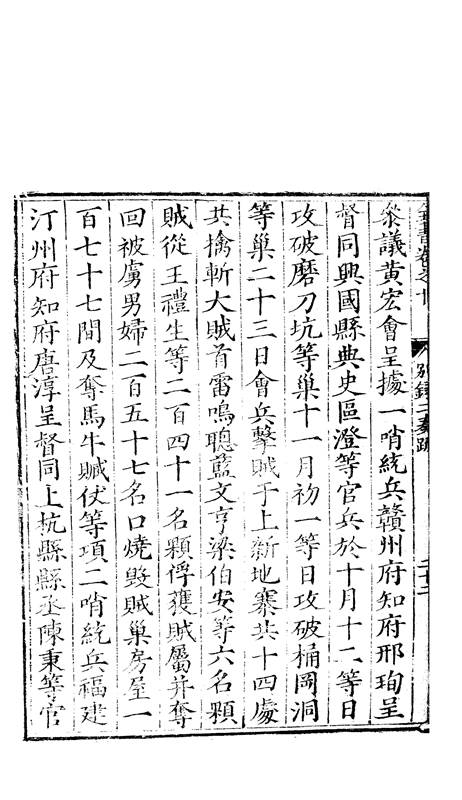 全書卷之十 別錄二奏疏 二十二
叅議黃宏會呈據一哨統兵贛州府知府邢珣呈
督同興國縣典史區澄等官兵於十月十二等日
攻破磨刀坑等巢十一月初一等日攻破桶岡洞
等巢二十三日會兵擊賊于上新地寨共十四處
共擒斬大賊首雷鳴聰藍文亨梁伯安等六名顆
賊從王禮生等二百四十一名顆俘獲賊屬并奪
回被虜男婦二百五十七名口燒毀賊巢房屋一
百七十七間及奪馬牛贓仗等項二哨統兵福建
汀州府知府唐淳呈督同上杭縣縣丞陳秉等官